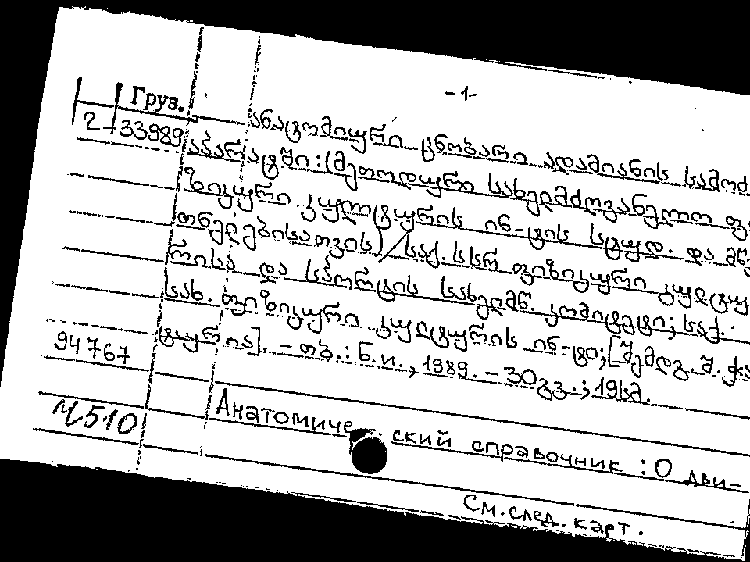 -1-
Груз.
2-33989
ანატომიური ცნობარი ადამიანის სამოძ
აპარატში : (მეთოდური სახელმძღვანელო ფი
ზიკური კულტურის ინ-ტის სტუდ. და მწ
რისა და სპორტის სახელმწ. კომიტეტი; საქ.
სახ. ფიზიკური კულტურის ინ-ტი; [შემდგ. შ.
ტურია]. - თბ. : Б.и., 1989. - 30გვ.; 19სმ.
94767
И510
Анатомический справочник : О дви-
См. след. карт.